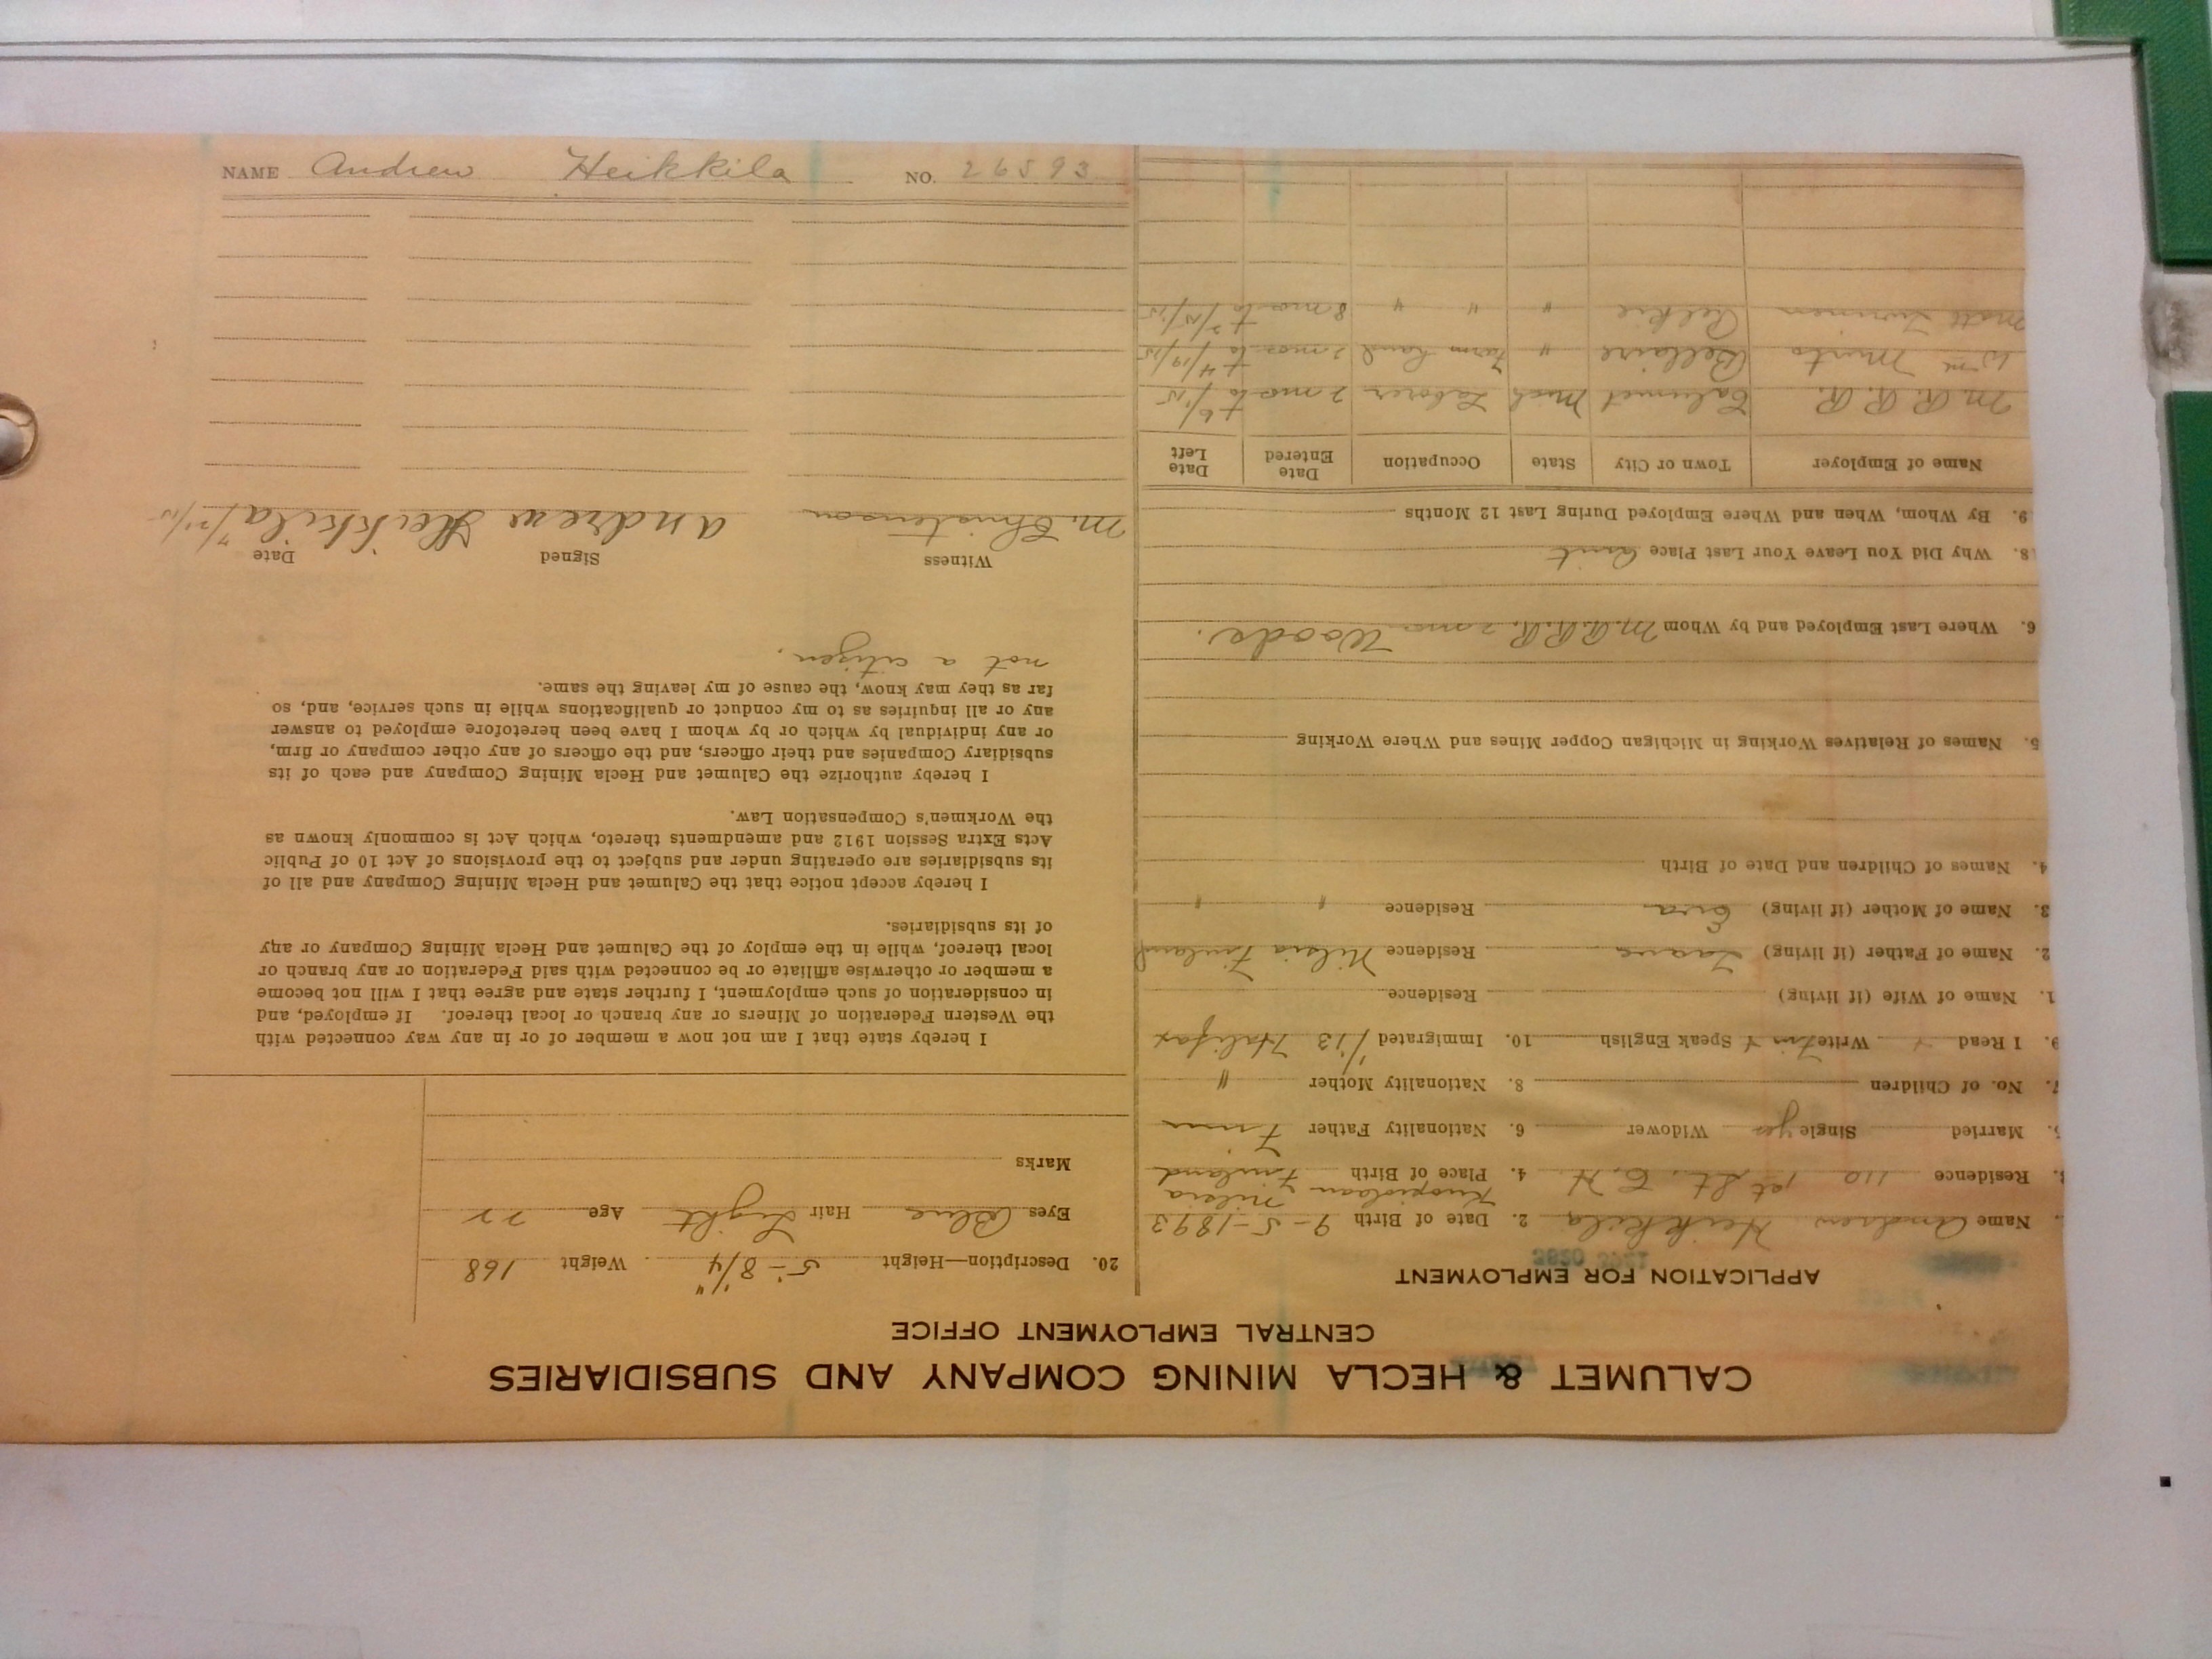 CALUMET & HECLA MINING COMPANY AND SUBSIDIARIES
CENTRAL EMPLOYMENT OFFICE
APPLICATION FOR EMPLOYMENT
Name Andrew Heikkila 2. Date of Birth 9-5-1893
Kuopiolaan Nilsia
Residence 110 1st St. 4. Place of Birth Finland
Married Single yes Widower 6. Nationality Father Finn
7. No. of Children 8. Nationality Mother "
9. I Read Y Write Finn Y Speak English 10. Immigrated 1/13 Halifax
1. Name of Wife (if living) Residence
2. Name of Father (if living) Residence Nilsia Finland
3. Name of Mother (if living) Eva Residence " "
4. Names of Children and Date of Birth
5. Names of Relatives Working in Michigan Copper Mines and Where Working
6. Where Last Employed and by Whom M.R.R.R. 2 mos Woods.
8. Why Did You Leave Your Last Place Quit
9. By Whom, When and Where Employed During Last 12 Months
Name of Employer Town or City State Occupation Date Entered Date Left
M.R.R.R. Calumet Mich Laborer 2 mos to 6/15
Wm Bellaire " Farm hand 2 mos to 4/19/15
Matt Pelkie " " " 8 mos to 2/15/15
20. Description—Height 5'-8 1/4" Weight 168
Eyes Blue Hair Light Age 22
Marks
I hereby state that I am not now a member of or in any way connected with
the Western Federation of Miners or any branch or local thereof. If employed, and
in consideration of such employment, I further state and agree that I will not become
a member or otherwise affiliate or be connected with said Federation or any branch or
local thereof, while in the employ of the Calumet and Hecla Mining Company or any
of its subsidiaries.
I hereby accept notice that the Calumet and Hecla Mining Company and all of
its subsidiaries are operating under and subject to the provisions of Act 10 of Public
Acts Extra Session 1912 and amendments thereto, which Act is commonly known as
the Workmen's Compensation Law.
I hereby authorize the Calumet and Hecla Mining Company and each of its
subsidiary Companies and their officers, and the officers of any other company or firm,
or any individual by which or by whom I have been heretofore employed to answer
any or all inquiries as to my conduct or qualifications while in such service, and, so
far as they may know, the cause of my leaving the same.
not a citizen.
Witness Signed Date
M. Christenson Andrew Heikkila
NAME Andrew Heikkila NO. 26593